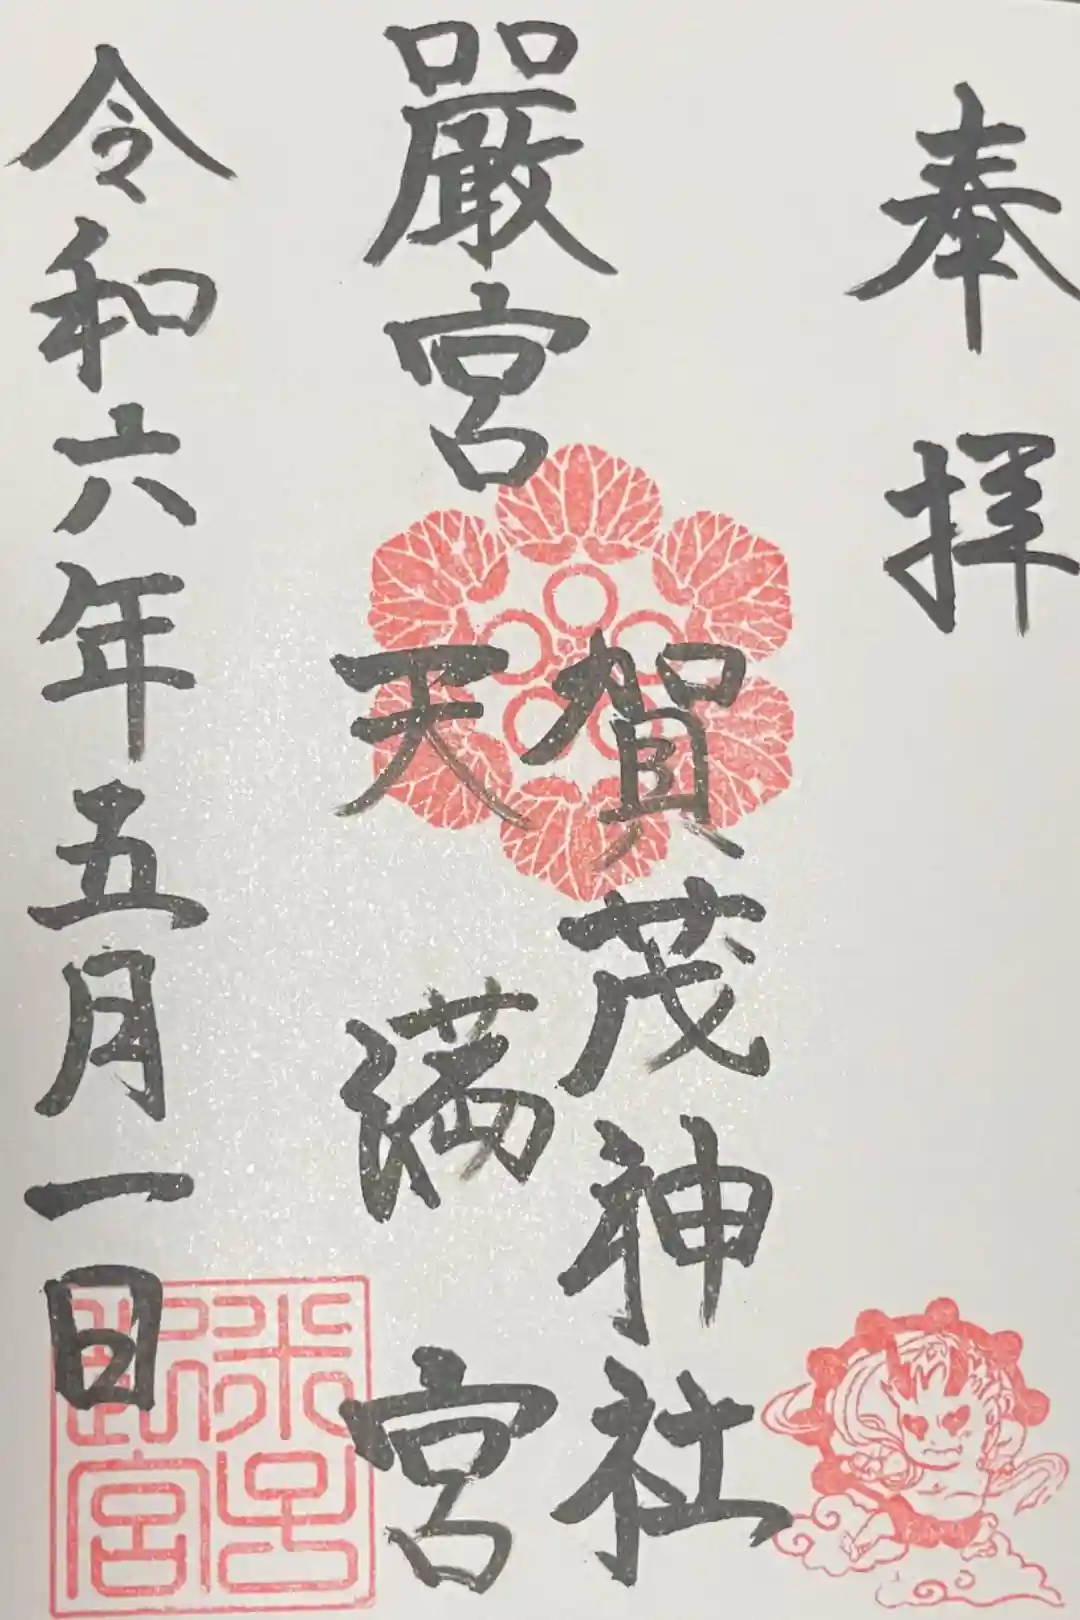 奉拝
嚴宮
賀茂神社
天満宮
令和六年五月一日